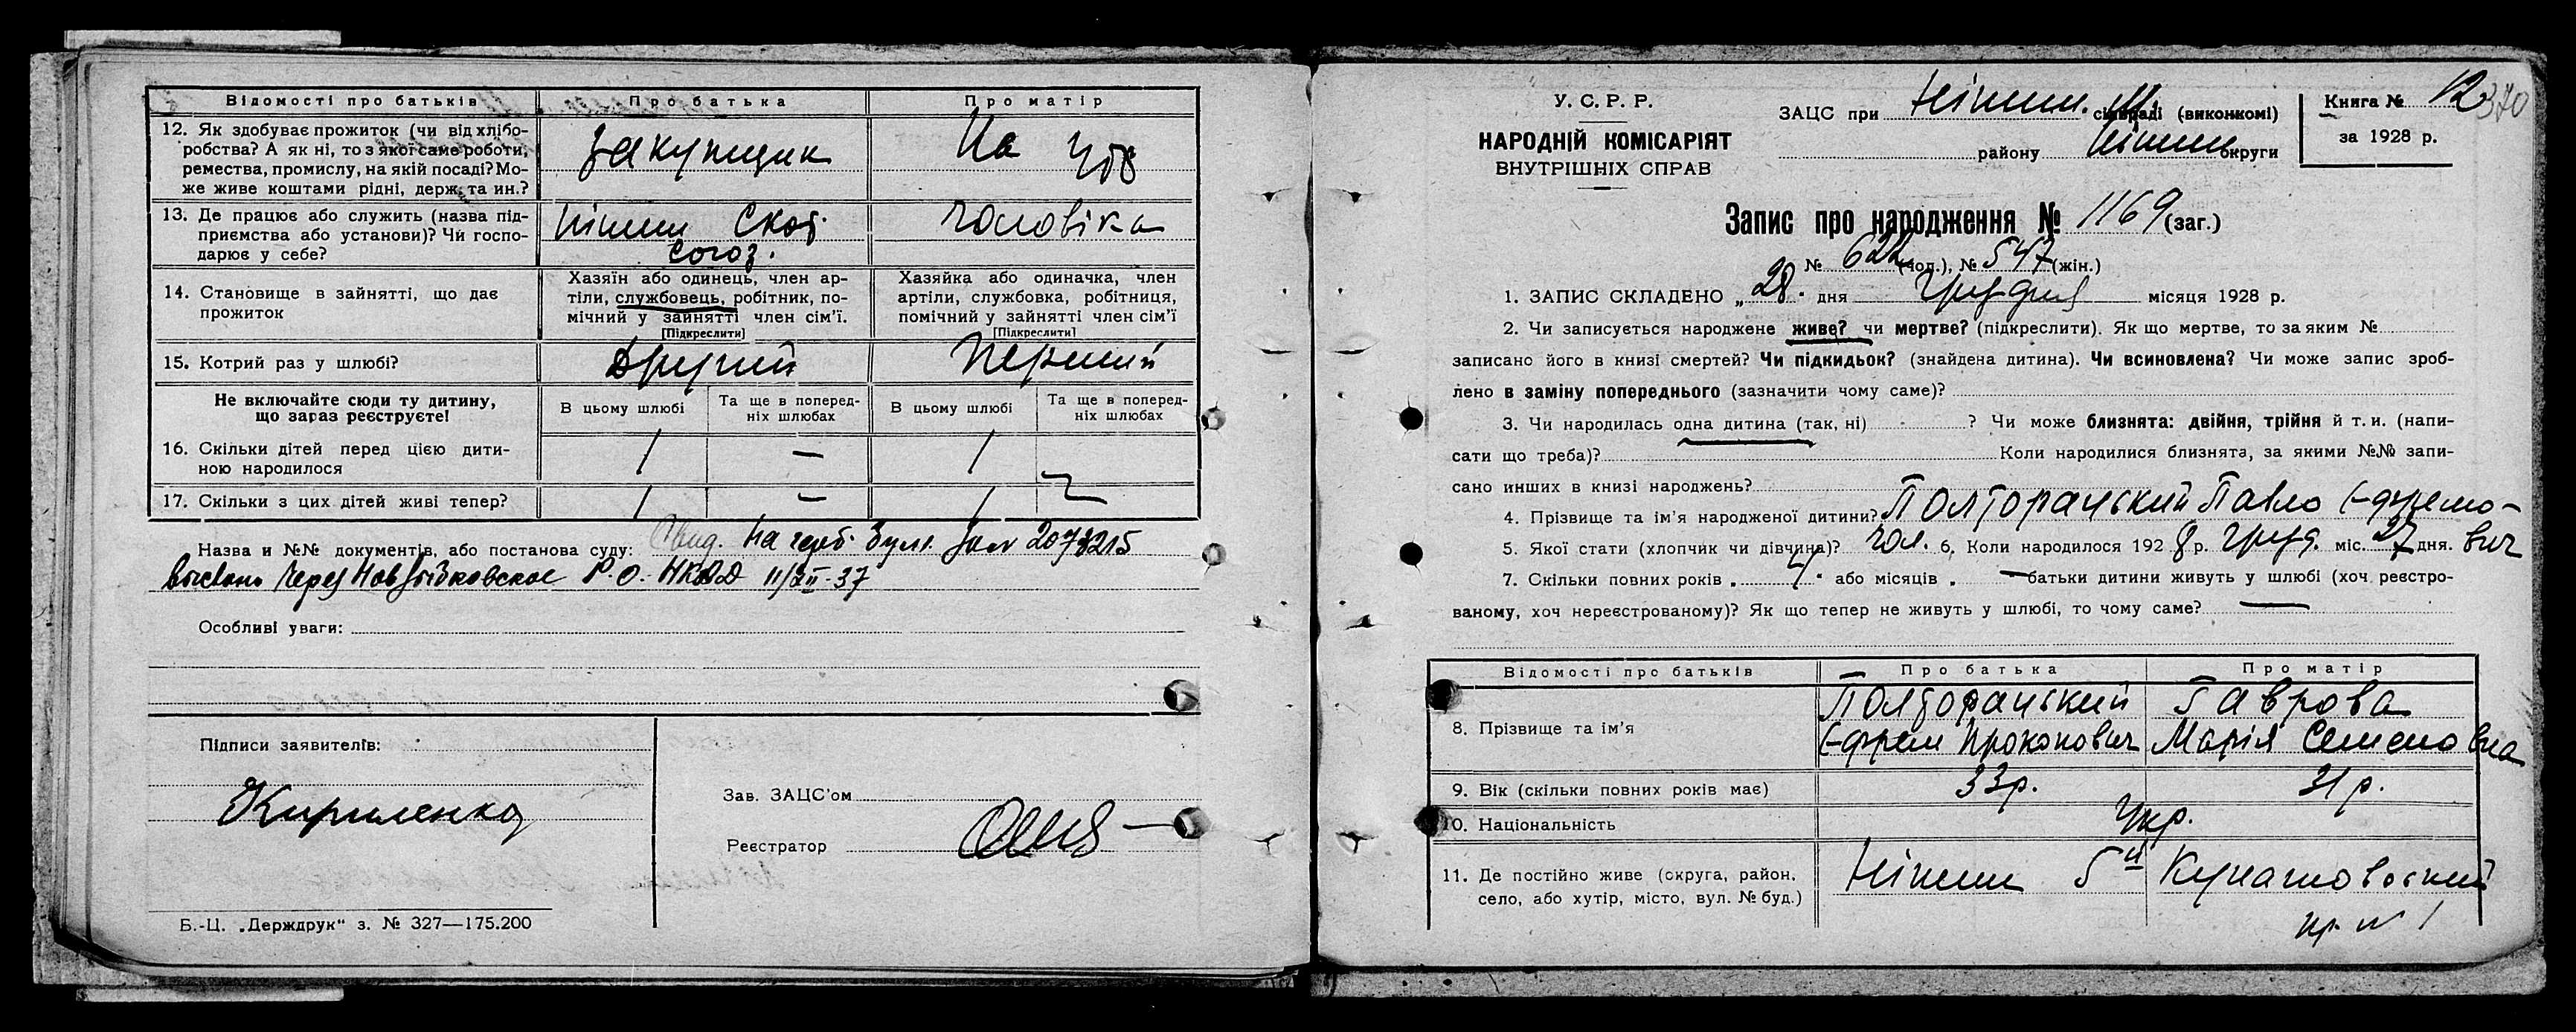 Відомості про батьків
Про батька
Про матір
12. Як здобуває прожиток (чи від хлібо-
робства? А як ні, то з якої саме роботи,
ремества, промислу, на якій посаді? Мо-
же живе коштами рідні, держ. та ин.?
Закупщик
На
13. Де працює або служить (назва під-
приємства або установи)? Чи госпо-
дарює у себе?
Ніжин Скот
союз.
чоловіка
14. Становище в зайнятті, що дає
прожиток
Хазяїн або одинець, член ар-
тілі, службовець, робітник, по-
мічний у зайнятті член сім'ї.
[Підкреслити]
Хазяйка або одиначка, член
артілі, службовка, робітниця,
помічний у зайнятті член сім'ї
[Підкреслити]
15. Котрий раз у шлюбі?
Другий
Перший
Не включайте сюди ту дитину,
що зараз реєструєте!
В цьому шлюбі
Та ще в поперед-
ніх шлюбах
В цьому шлюбі
Та ще в поперед-
ніх шлюбах
16. Скільки дітей перед цією дити-
ною народилося
1 — 1
17. Скільки з цих дітей живі тепер?
1 — 1
Назва и №№ документів, або постанова суду: Свид. на герб.
через Р.О. НКВД 11/XII-37
Особливі уваги:
Підписи заявителів:
Кириленко
Зав. ЗАЦС'ом
Реєстратор
Б.-Ц. „Держдрук" з. № 327—175.200
У. С. Р. Р.
НАРОДНІЙ КОМІСАРІЯТ
ВНУТРІШНІХ СПРАВ
ЗАЦС при Ніжин. сільраді (виконкомі)
району Ніжин округи
Книга № 12
за 1928 р.
370
Запис про народження № 1169 (заг.)
№ 622 (чол.), № 547 (жін.)
1. ЗАПИС СКЛАДЕНО „28" дня Грудня місяця 1928 р.
2. Чи записується народжене живе? чи мертве? (підкреслити). Як що мертве, то за яким №
записано його в книзі смертей? Чи підкидьок? (знайдена дитина). Чи всиновлена? Чи може запис зроб-
лено в заміну попереднього (зазначити чому саме)?
3. Чи народилась одна дитина (так, ні) ? Чи може близнята: двійня, трійня й т. и. (напи-
сати що треба)? Коли народилися близнята, за якими №№ запи-
сано инших в книзі народжень?
4. Прізвище та ім'я народженої дитини? Полторацький Павло Єфремо-
вич
5. Якої стати (хлопчик чи дівчина)? чол. 6. Коли народилося 1928 р. Груд. міс. 27 дня.
7. Скільки повних років „4" або місяців „ — батьки дитини живуть у шлюбі (хоч реєстро-
ваному, хоч нереєстрованому)? Як що тепер не живуть у шлюбі, то чому саме? —
Відомості про батьків
Про батька
Про матір
8. Прізвище та ім'я
Полторацький
Єфрем Прокопович
Гаврова
Марія Семеновна
9. Вік (скільки повних років має)
33 р.
31 р.
10. Національність
Укр.
11. Де постійно живе (округа, район,
село, або хутір, місто, вул. № буд.)
Ніжин 5й Кунашовський
№ 1